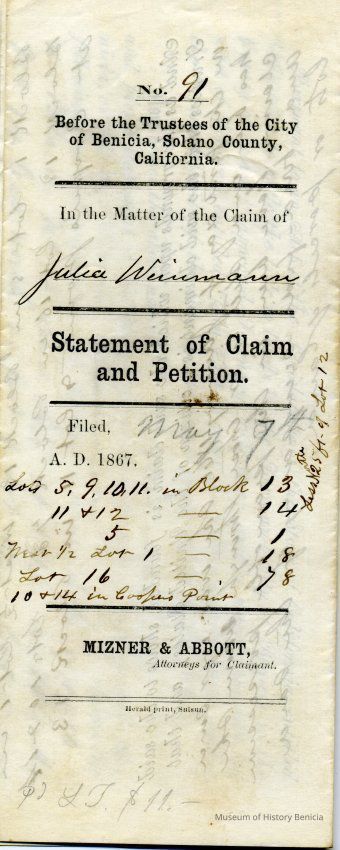 No. 91
Before the Trustees of the City
of Benicia, Solano County,
California.
In the Matter of the Claim of
Julia Weinmann
Statement of Claim
and Petition.
Filed, May 7th
A. D. 1867.
Lots 5, 9, 10, 11. in Block 13
11 & 12 — 14
5 — 1
West 1/2 Lot 1 — 18
Lot 16 — 78
10 & 14 in Coopers Point
25 ft. of Lot 12
MIZNER & ABBOTT,
Attorneys for Claimant.
Herald print, Suisun.
pd $11.-
Museum of History Benicia